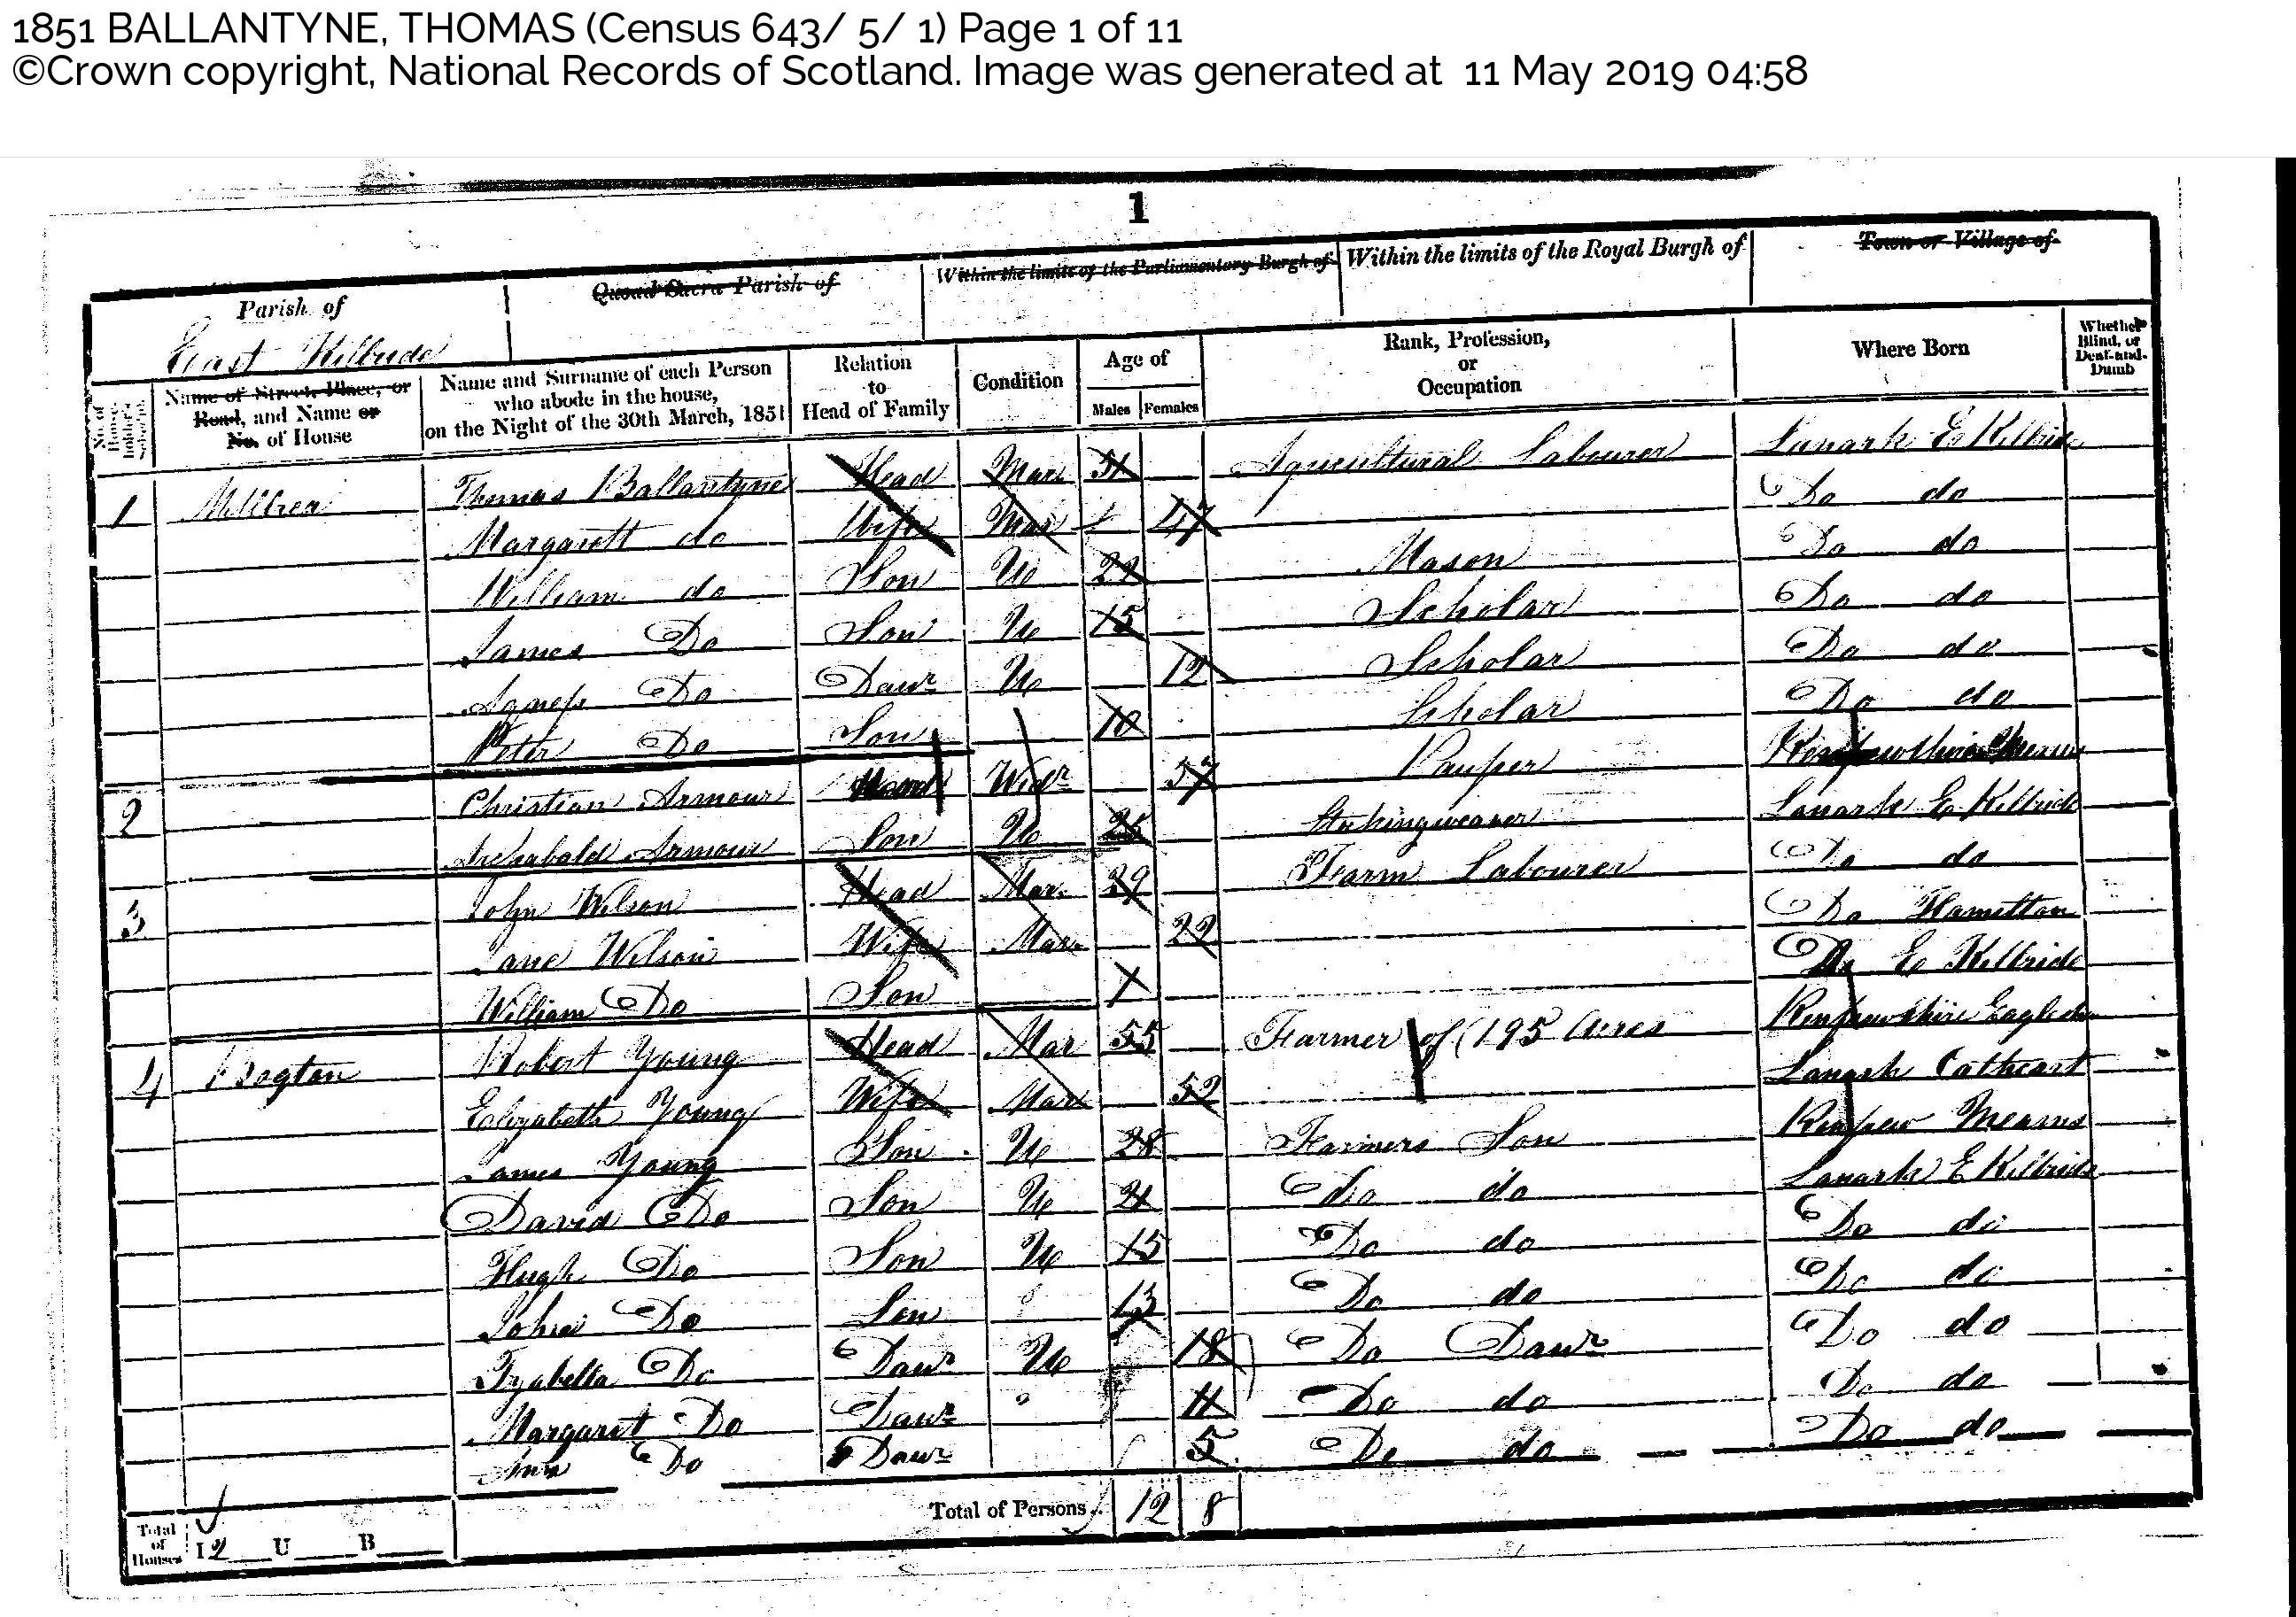 1851 BALLANTYNE, THOMAS (Census 643/ 5/ 1) Page 1 of 11
©Crown copyright, National Records of Scotland. Image was generated at 11 May 2019 04:58
1
Parish of Quoad Sacra Parish of Within the limits of the Parliamentary Burgh of Within the limits of the Royal Burgh of Town or Village of
East Kilbride
Name of Street, Place, or Road, and Name or No. of House Name and Surname of each Person who abode in the house, on the Night of the 30th March, 1851 Relation to Head of Family Condition Age of Males Females Rank, Profession, or Occupation Where Born Whether Blind, or Deaf-and-Dumb
1 Thomas Ballantyne Head Mar 51 Agricultural Labourer Lanark E Kilbride
Margarett do Wife Mar 47 Do do
William do Son U 22 Mason Do do
James Do Son U 15 Scholar Do do
Agness Do Dawr U 12 Scholar Do do
Peter Do Son 10 Scholar Do do
2 Christian Armour Head Widr 57 Pauper Renfrewshire Mearns
Archabald Armour Son U Stokingweaver Lanark E Kilbride
3 John Wilson Head Mar. 29 Farm Labourer Do do
Jane Wilson Wife Mar. 22 Do Hamilton
William Do Son 1 Do E Kilbride
4 Bogton Robert Young Head Mar 55 Farmer of 195 Acres Renfrewshire
Elizabeth Young Wife Mar 52 Lanark Cathcart
James Young Son U 28 Farmers Son Renfrew Mearns
David Do Son U 21 Do do Lanark E Kilbride
Hugh Do Son U 15 Do do Do do
John Do Son 13 Do do Do do
Izabella Do Dawr U 18 Do Dawr Do do
Margaret Do Dawr 11 Do do Do do
Ann Do Dawr 5 Do do Do do
Total of Houses I 2 U B Total of Persons 12 8